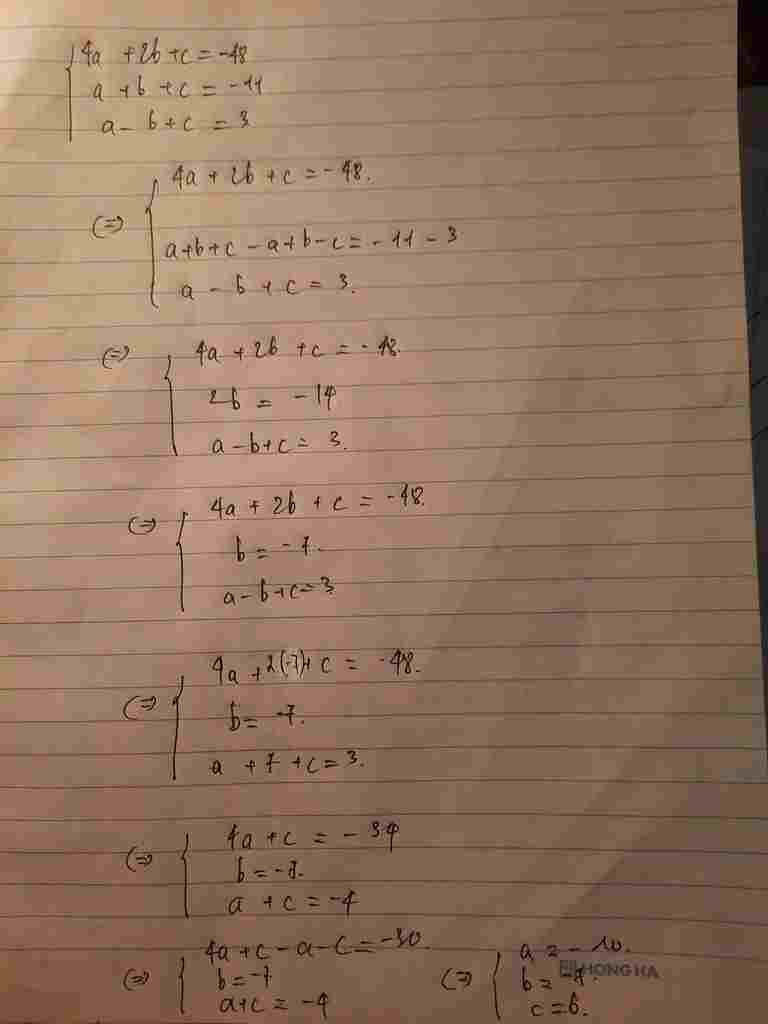 4a + 2b + c = -48
a + b + c = -11
a - b + c = 3
(=) 4a + 2b + c = -48.
a + b + c - a + b - c = -11 - 3
a - b + c = 3.
(=) 4a + 2b + c = -48.
2b = -14
a - b + c = 3.
(=) 4a + 2b + c = -48.
b = -7.
a - b + c = 3
(=) 4a + 2(-7) + c = -48.
b = -7.
a + 7 + c = 3.
(=) 4a + c = -34
b = -7.
a + c = -4
(=) 4a + c - a - c = -30.
b = -7
a + c = -4
(=) a = -10.
b = -7.
c = 6.
HONG HA